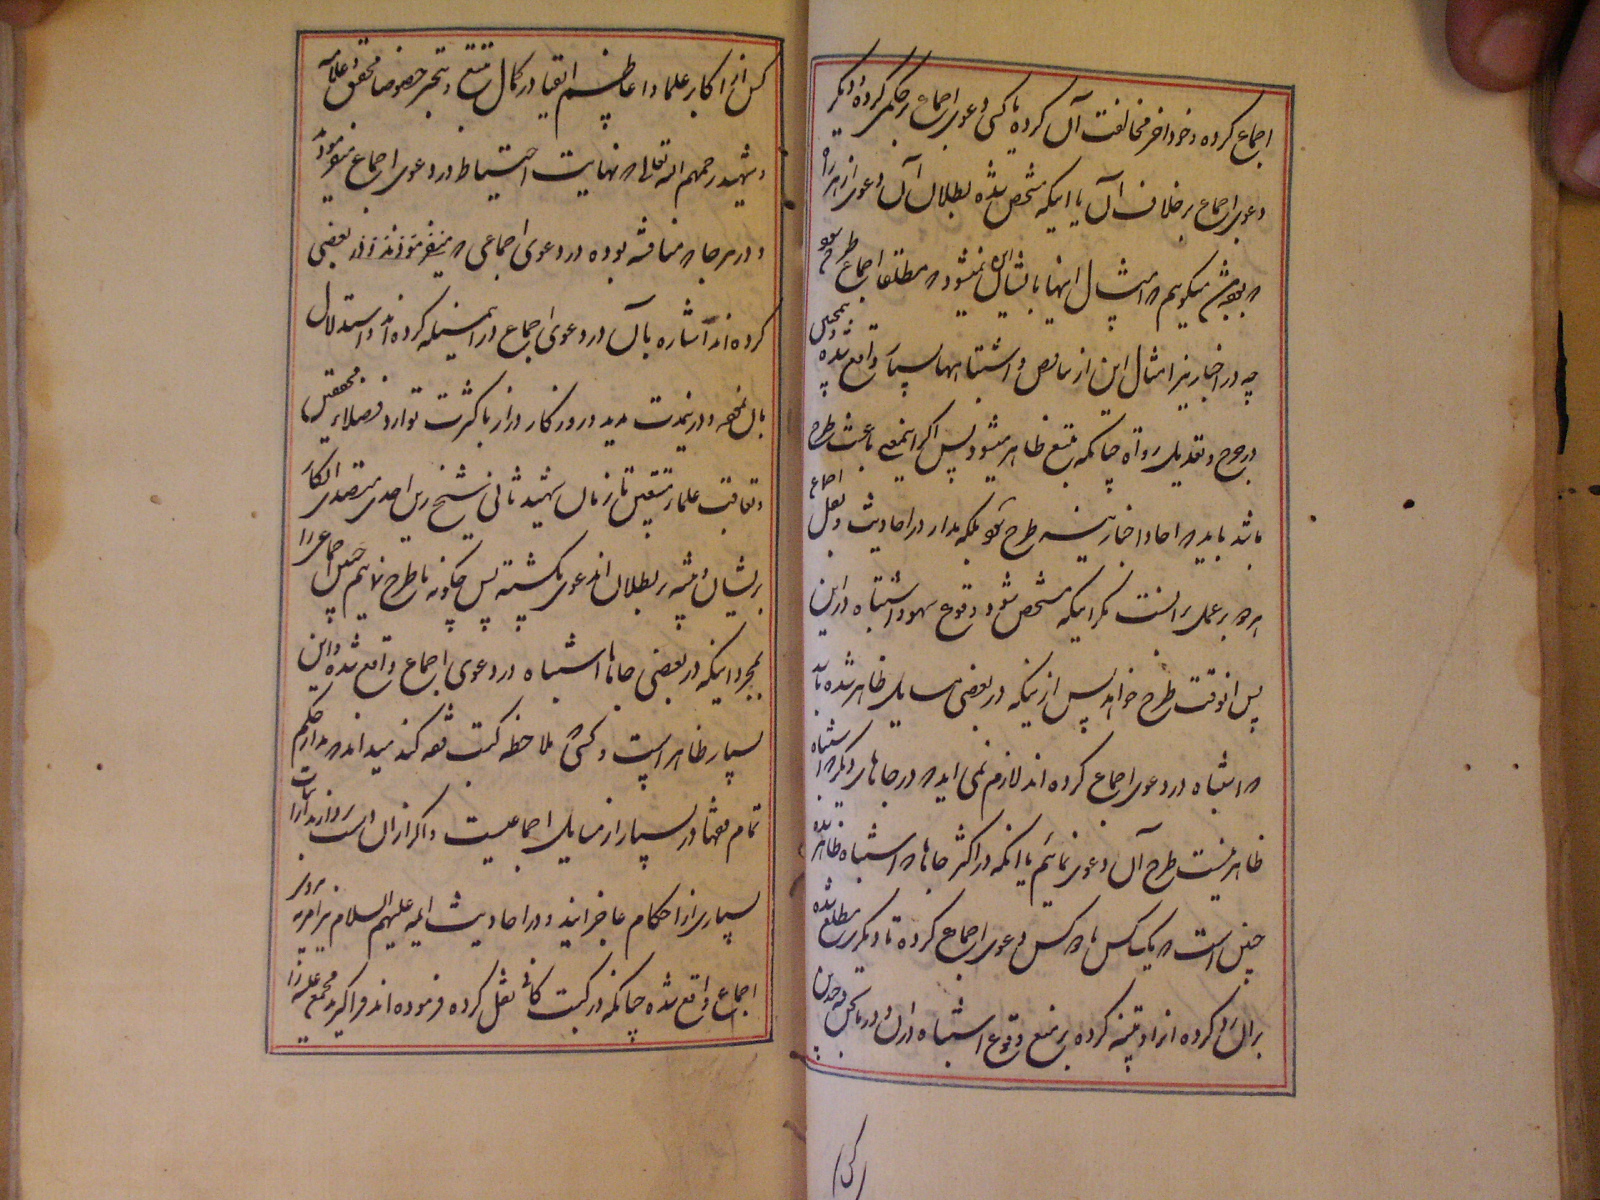 اجماع کرده و خود اخر مخالفت آن کرده یا کسی دعوی اجماع بر حکمی کرده و دیگر
دعوی اجماع بر خلاف آن یا اینکه مشخص شده بطلان آن دعوی از هر راه
که بوده میگویم که امثال اینها باعث این نمیشود که مطلقا اجماع طرح شود
چه در اخبار نیز امثال این از تناقض و اشتباهها بسیار واقع شده و همچنین
در جرح و تعدیل رواة چنانکه بتتبع ظاهر میشود پس اگر اینمعنی باعث طرح
باشد باید که احاد اخبار نیز طرح شود بلکه مدار در احادیث و نقل اجماع
هر دو بر عمل است مگر اینکه مشخص شود وقوع سهو و اشتباه در این
پس انوقت طرح خواهد پس از اینکه در بعضی مسایل ظاهر شده باشد
که اشتباه در دعوی اجماع کرده اند لازم نمی اید که در جاهای دیگر که اشتباه
ظاهر نیست طرح آن دعوی نمائیم با انکه در اکثر جاها که اشتباه ظاهر شده
چنین است که یک کس یا دو کس دعوی اجماع کرده تا دیگری مطلع شده
بر آن رد کرده انرا و تنبیه کرده بر منع وقوع اشتباه در ان و در ما نحن فیه چندین
کس از اکابر علما و اعاظم اتقیا در کمال تتبع و تبحر خصوصا محقق و علامه
و شهید رحمهم الله تعالی که نهایت احتیاط در دعوی اجماع میفرموده
و در هر جا که مناقشه بوده در دعوی اجماعی که میفرموده اند بعضی
کرده اند اشاره بآن در دعوی اجماع در اینمسئله کرده اند و استدلال
بآن نموده و در نمدت مدید و روزگار دراز با کثرت توارد فضلاء محققین
و تعاقب علماء متقین تا زمان شهید ثانی شیخ زین احدی متصدی انکار
بر ایشان و تنبیه بر بطلان اندعوی نگشته پس چگونه ما طرح نمائیم چنین اجماعی را
بمجرد اینکه در بعضی جاها اشتباه در دعوی اجماع واقع شده و این
بسیار ظاهر است و کسی که ملاحظه کتب فقه کند میداند که مدار حکم
تمام فقها در بسیار از مسایل اجماعیست و اگر از ان دست بردارند از اثبات
بسیاری از احکام عاجز ایند و در احادیث ایمه علیهم السلام نیز امر به
اجماع واقع شده چنانکه در کتب کافی نقل کرده فرموده اند فراگیر مجمع علیه را